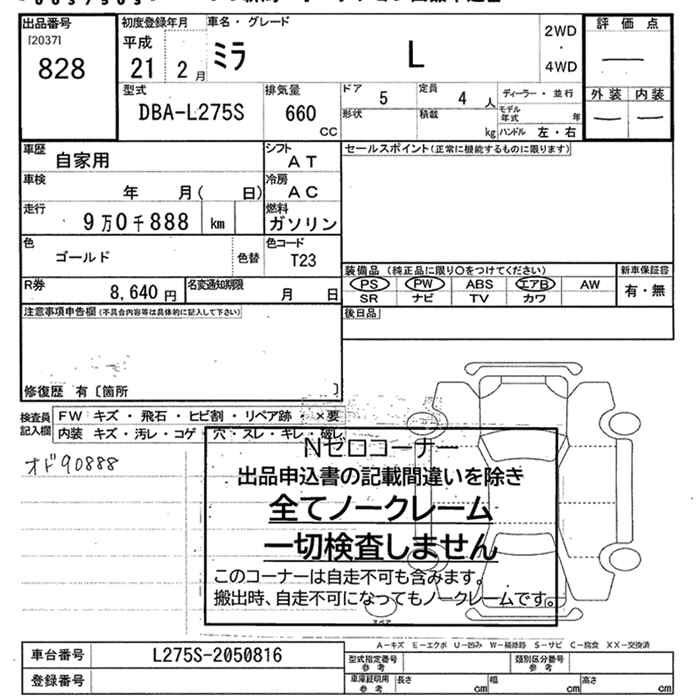 出品番号 初度登録年月 車名・グレード 2WD ・ 4WD 評価点
[2037]
828 平成 21 2月 ミラ L
外装 内装
型式 DBA-L275S 排気量 660 CC ドア 5 定員 4 人 ディーラー・並行
形状 積載 kg モデル年式 年
ハンドル 左・右
車歴 自家用 シフト AT セールスポイント(正常に機能するものに限ります)
車検 年 月( 日) 冷房 AC
走行 9万0千888 km 燃料 ガソリン
色 ゴールド 色替 色コード T23
装備品 (純正品に限り〇をつけてください) 新車保証書
PS PW ABS エアB AW 有・無
SR ナビ TV カワ
R券 8,640 円 名変通知期限 月 日
注意事項申告欄(不具合内容等は具体的に記入して下さい) 後日品
修復歴 有〔箇所 〕
検査員記入欄 FW キズ・飛石・ヒビ割・リペア跡・×要
内装 キズ・汚レ・コゲ・穴・スレ・キレ・破レ
オド90888
Nゼロコーナー
出品申込書の記載間違いを除き
全てノークレーム
一切検査しません
このコーナーは自走不可も含みます。
搬出時、自走不可になってもノークレームです。
スペア
A-キズ E-エクボ U-凹み W-補修跡 S-サビ C-腐食 XX-交換済
車台番号 L275S-2050816 型式指定番号 参考 類別区分番号 参考
登録番号 車庫証明用 参考 長さ cm 幅 cm 高さ cm